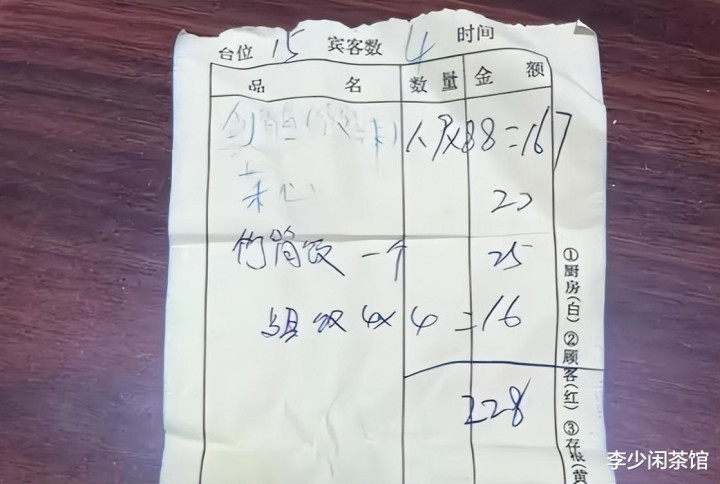 台位 15 宾客数 4 时间
品名 数量 金额
1.9x88=167
菜心 20
竹筒饭 一个 25
4x4=16
228
①厨房(白)②顾客(红)③存根(黄
李少闲茶馆